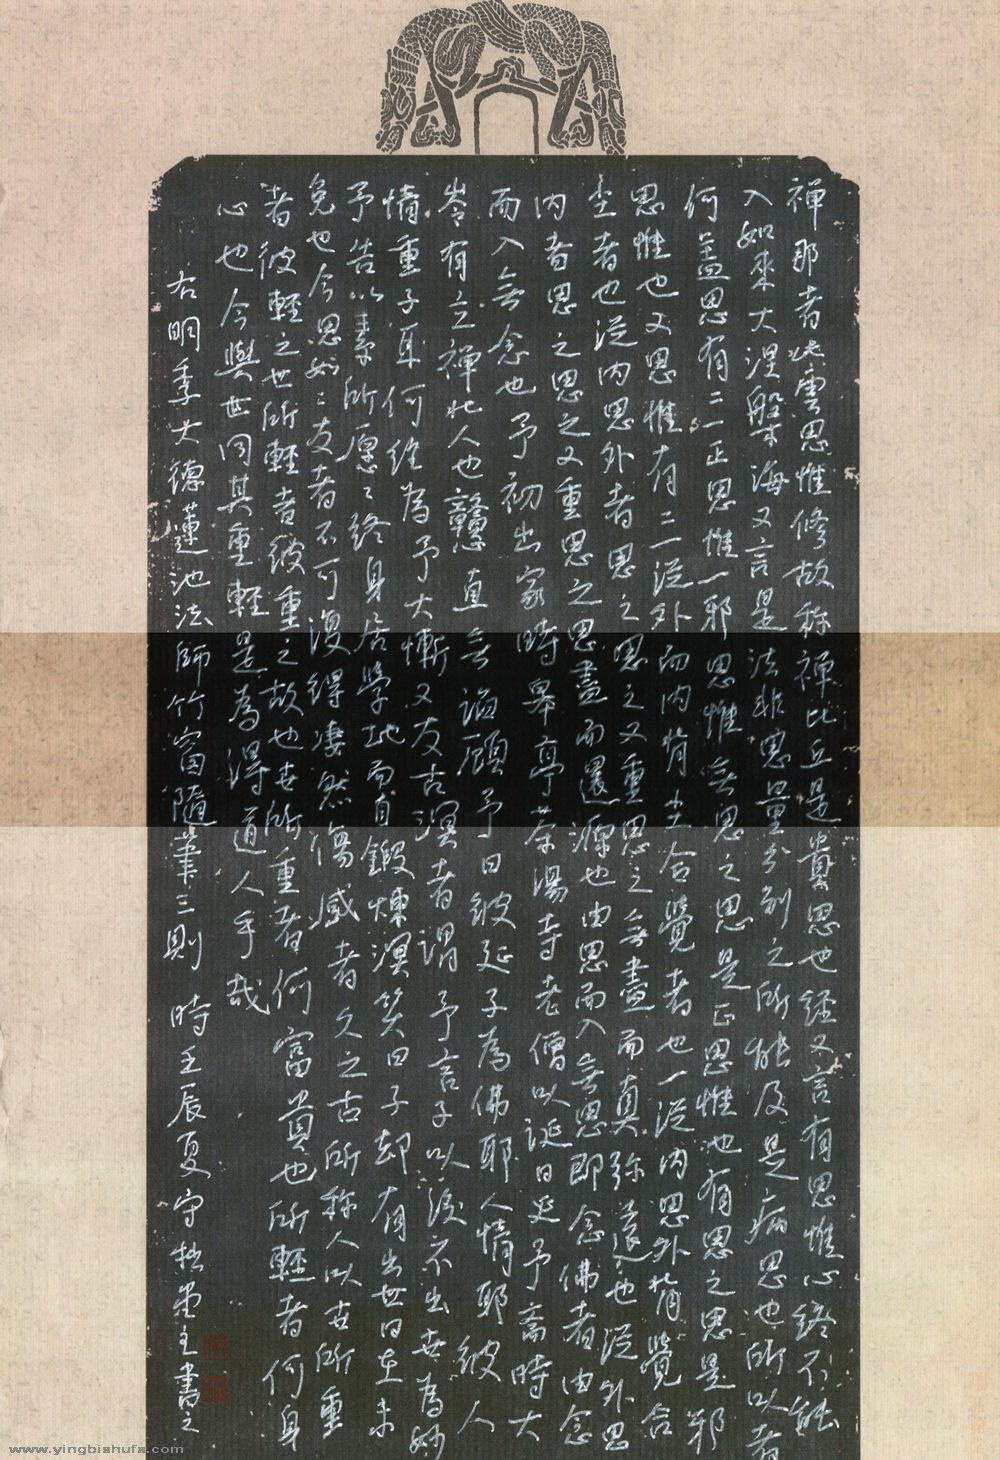 禅那者此雲思惟修故称禅比丘是貴思也經又言有思惟心終不能
入如来大涅槃海又言是法非思量分别之所能及是病思也所以者
何盖思有二一正思惟一邪思惟無思之思是正思惟也有思之思是邪
思惟也又思惟有二一從外而内背尘合覺者也一從内思外背覺合
尘者也從内思外者思之思之又重思之思之無盡而真弥遠也從外思
内者思之思之又重思之思盡而還源也由思而入無思即念佛者由念
而入無念也予初出家時皋亭茶湯寺老僧以誕日延予斋時大
岑有立禅北人也戇直無諂顧予曰彼延子為佛耶人情耶彼人
情重子耳何往為予大慚又友古溟者謂予言子以後不出世為妙
予告以素所愿愿終身居學地而自鍛煉溟笑曰子却有出世日在未
免也今思如二友者不可復得凄然傷感者久之古所称人以世所重
者彼輕之世所輕者彼重之故也世所重者何富貴也所輕者何身
心也今與世同其重輕是為得道人乎哉
右明季大德蓮池法師竹窗隨筆三則 時壬辰夏守拙堂主書之
www.yingbishufa.com